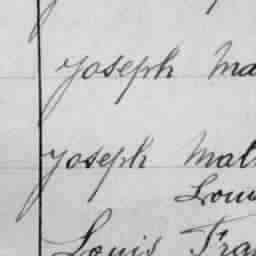 Joseph Ma
Joseph Mal
Lou
Louis Fra